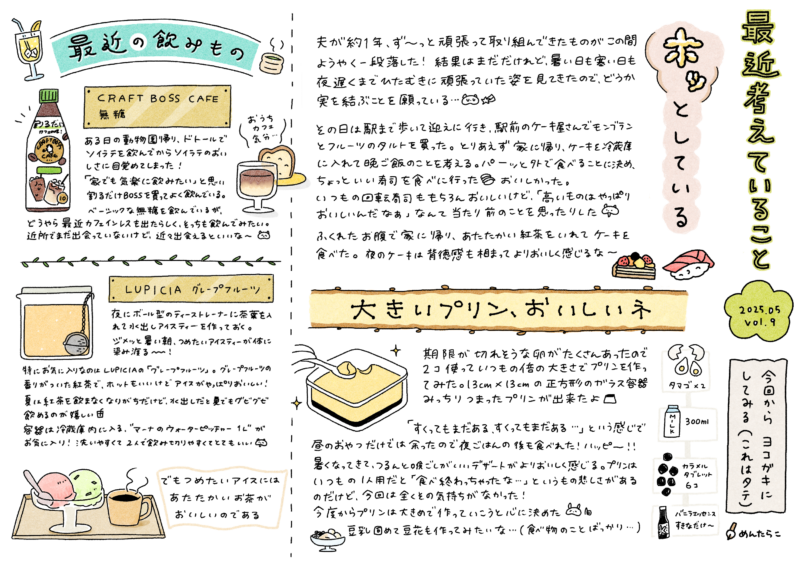 最近考えていること
2025.05
vol.9
今回から ヨコガキに
してみる(これはタテ)
めんたらこ
ホッとしている
夫が約1年、ず〜っと頑張って取り組んできたものがこの間
ようやく一段落した! 結果はまだだけれど、暑い日も寒い日も
夜遅くまでひたむきに頑張っていた姿を見てきたので、どうか
実を結ぶことを願っている…
その日は駅まで歩いて迎えに行き、駅前のケーキ屋さんでモンブラン
とフルーツのタルトを買った。とりあえず家に帰り、ケーキを冷蔵庫
に入れて晩ご飯のことを考える。パーッと外で食べることに決め、
ちょっといい寿司を食べに行った おいしかった。
いつもの回転寿司ももちろんおいしいけど、「高いものはやっぱり
おいしいんだなぁ」なんて当たり前のことを思ったりした
ふくれたお腹で家に帰り、あたたかい紅茶をいれてケーキを
食べた。夜のケーキは背徳感も相まってよりおいしく感じるな〜
大きいプリン、おいしいネ
期限が切れそうな卵がたくさんあったので
2コ使っていつもの倍の大きさでプリンを作っ
てみた。13cm×13cmの正方形のガラス容器
みっちりつまったプリンが出来たよ
「すくってもまだある、すくってもまだある…」という感じで
昼のおやつだけでは余ったので夜ごはんの後も食べれた!ハッピ〜!!
暑くなってきて、つるんと喉ごしがいいデザートがよりおいしく感じる。プリンは
いつも1人用だと「食べ終わっちゃったな…」というもの悲しさがある
のだけど、今回は全くその気持ちがなかった!
今度からプリンは大きめで作っていこうと心に決めた
豆乳固めて豆花も作ってみたいな…(食べ物のことばっかり…)
タマゴ×2
MILK
300ml
カラメル
タブレット
6コ
バニラエッセンス
すきなだけ〜
最近の飲みもの
CRAFT BOSS CAFE
無糖
おうち
カフェ
気分…
割るだけ
CRAFT BOSS
ある日の動物園帰り、ドトールで
ソイラテを飲んでからソイラテのおい
しさに目覚めてしまった!
「家でも気楽に飲みたい」と思い
割るだけBOSSを買ってよく飲んでいる。
ベーシックな無糖を飲んでいるが、
どうやら最近カフェインレスも出たらしく、そっちも飲んでみたい。
近所でまだ出会っていないけど、近々出会えるといいな〜
LUPICIA グレープフルーツ
夜にボール型のティーストレーナーに茶葉を入
れて水出しアイスティーを作っておく。
ジメッと暑い朝、つめたいアイスティーが体に
染み渡る〜〜!
特にお気に入りなのはLUPICIAの「グレープフルーツ」。グレープフルーツの
香りがついた紅茶で、ホットもいいけどアイスがやっぱりおいしい!
夏に紅茶を飲まなくなりがちだけど、水出しだと夏でもグビグビ
飲めるのが嬉しい
容器は冷蔵庫内に入る、"マーナのウォーターピッチャー 1L"が
お気に入り!洗いやすくて2人で飲み切りやすくてとてもいい
でもつめたいアイスには
あたたかいお茶が
おいしいのである